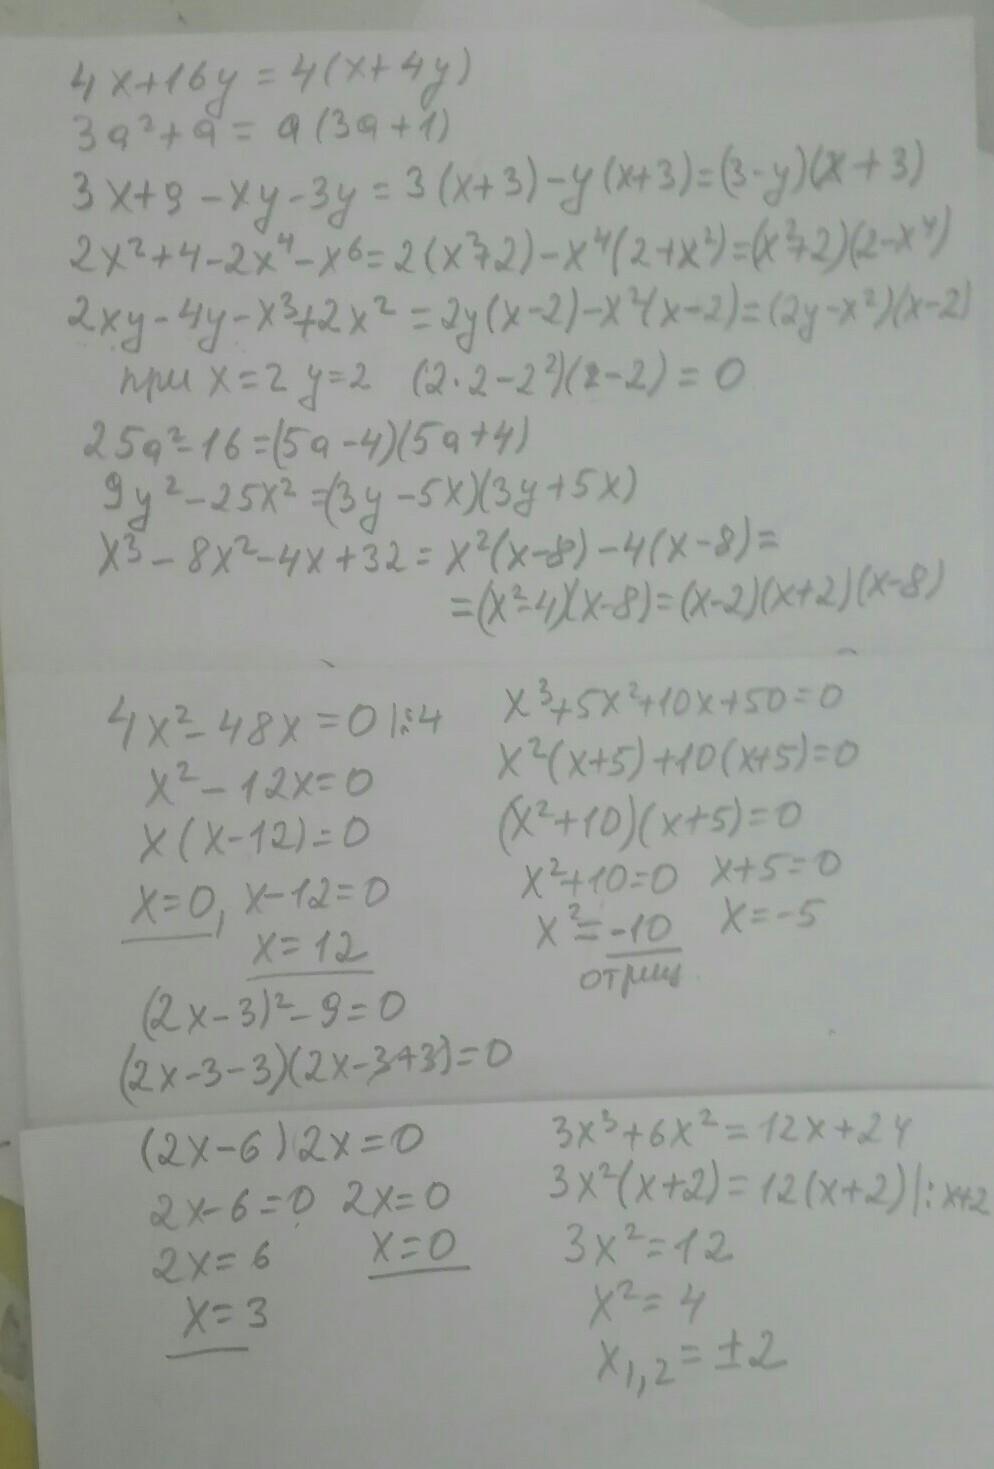 4x+16y = 4(x+4y)
3a²+a = a(3a+1)
3x+9-xy-3y = 3(x+3)-y(x+3)=(3-y)(x+3)
2x²+4-2x⁴-x⁶=2(x²+2)-x⁴(2+x²)=(x²+2)(2-x⁴)
2xy-4y-x³+2x² =2y(x-2)-x²(x-2)=(2y-x²)(x-2)
при x=2 y=2 (2·2-2²)(2-2)=0
25a²-16=(5a-4)(5a+4)
9y²-25x²=(3y-5x)(3y+5x)
x³-8x²-4x+32=x²(x-8)-4(x-8)=
=(x²-4)(x-8)=(x-2)(x+2)(x-8)
4x²-48x=0 |:4
x²-12x=0
x(x-12)=0
x=0, x-12=0
x=12
(2x-3)²-9=0
(2x-3-3)(2x-3+3)=0
(2x-6)2x=0
2x-6=0 2x=0
2x=6 x=0
x=3
x³+5x²+10x+50=0
x²(x+5)+10(x+5)=0
(x²+10)(x+5)=0
x²+10=0 x+5=0
x²=-10 x=-5
отриц.
3x³+6x²=12x+24
3x²(x+2)=12(x+2)|:x+2
3x²=12
x²=4
x₁,₂=±2